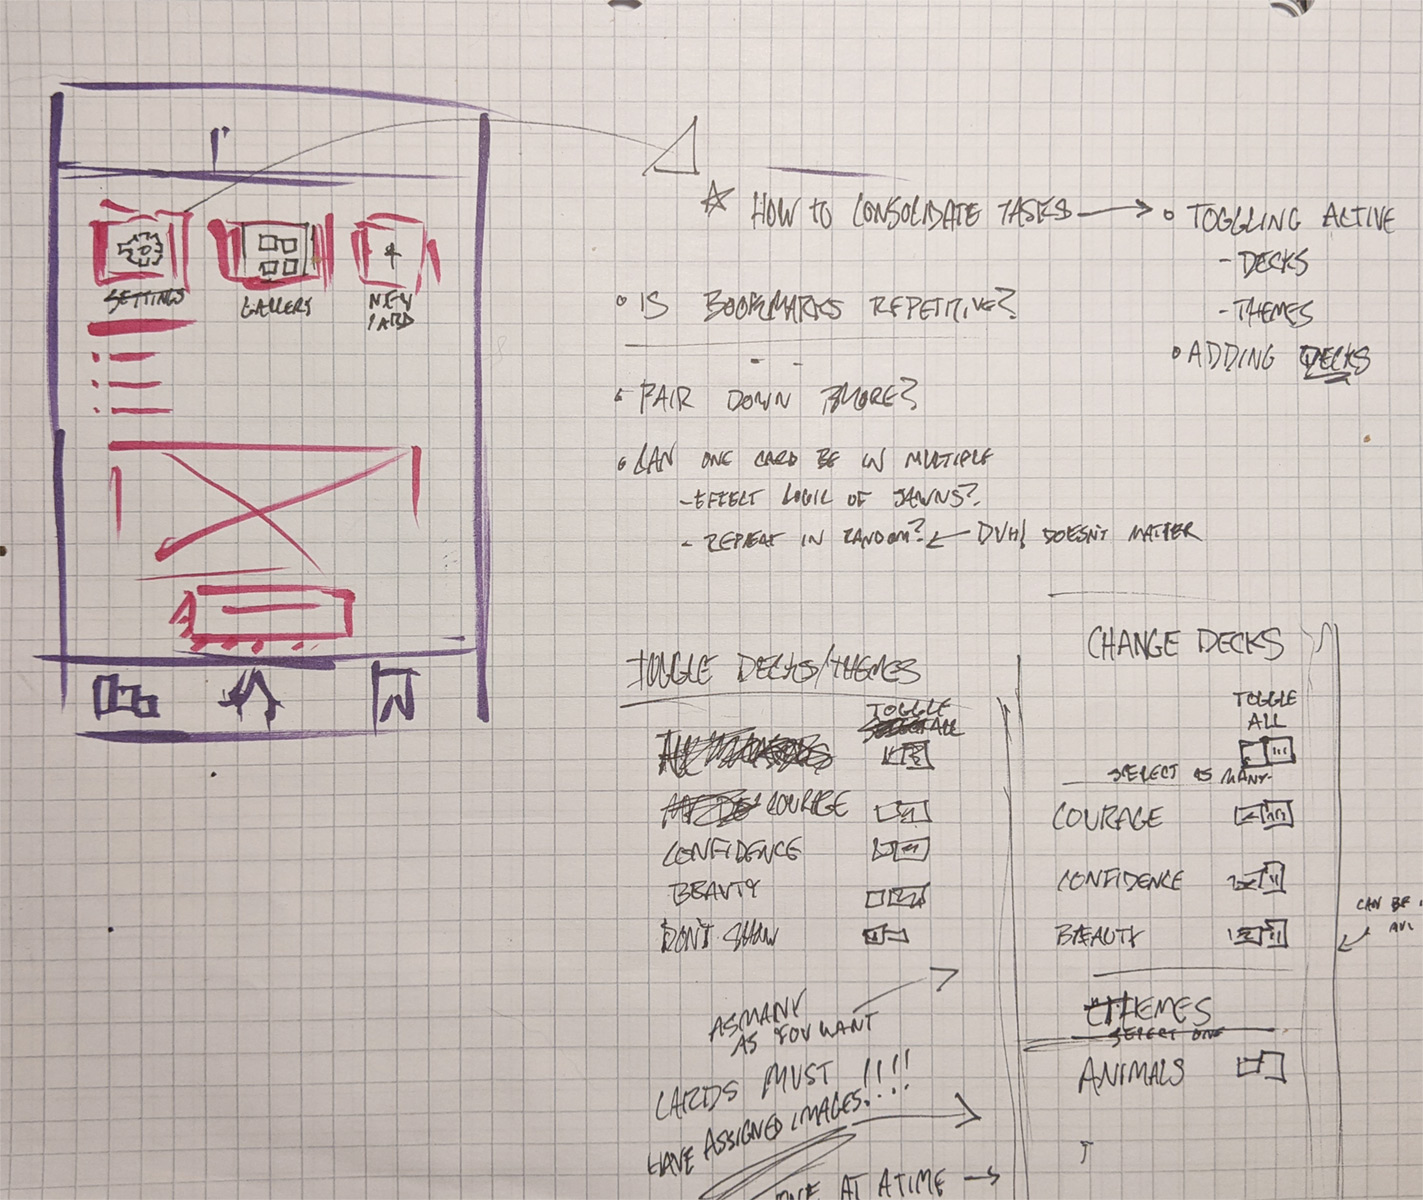 SETTINGS
GALLERY
NEW
CARD
☆ HOW TO CONSOLIDATE TASKS → ∘ TOGGLING ACTIVE
- DECKS
- THEMES
• ADDING DECKS
∘ IS BOOKMARKS REPETITIVE?
• PAIR DOWN MORE?
∘ CAN ONE CARD BE IN MULTIPLE
- EFFECT LOGIC OF JAWNS?
- REPEAT IN RANDOM? ← DUH! DOESN'T MATTER
TOGGLE DECKS/THEMES
TOGGLE
ALL
COURAGE
CONFIDENCE
BEAUTY
DON'T SHOW
AS MANY
AS YOU WANT
CARDS MUST !!!!
HAVE ASSIGNED IMAGES!!!!
ONE AT A TIME →
CHANGE DECKS
TOGGLE
ALL
SELECT AS MANY
COURAGE
CONFIDENCE
BEAUTY
CAN BE
THEMES
SELECT ONE
ANIMALS